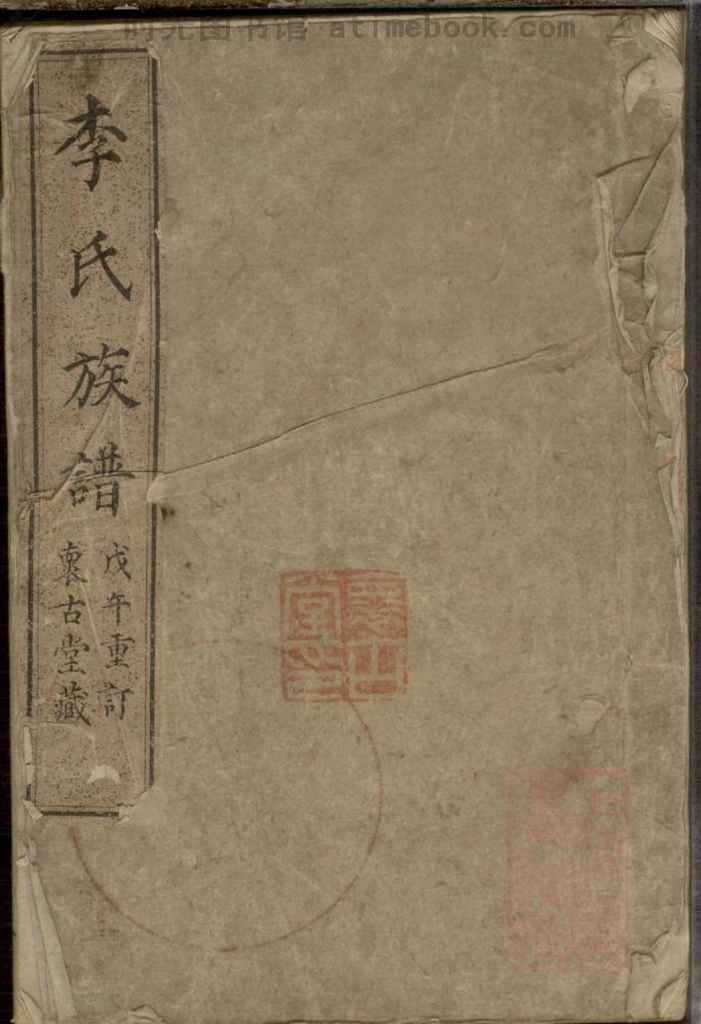 时光图书馆 atimebook.com
李氏族譜
戊午重訂
裹古堂藏